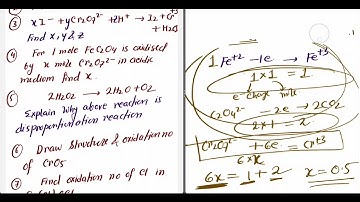 ③ xI⁻ + yCr₂O₇²⁻ + zH⁺ → I₂ + Cr⁺³
+ H₂O
Find x, y & z
④ For 1 mole FeC₂O₄ is oxidised
by x mole Cr₂O₇²⁻ in acidic
medium find x.
⑤ 2H₂O₂ → 2H₂O + O₂
Explain why above reaction is
disproportionation reaction
⑥ Draw structure & oxidation no
of CrO₅
⑦ Find oxidation no of Cl in
1 Fe⁺² - 1e → Fe⁺³
1×1 = 1
e⁻ change mole
C₂O₄²⁻ - 2e → 2CO₂
2×1 = 2
Cr₂O₇²⁻ + 6e = Cr⁺³
6×x
6x = 1 + 2 x = 0.5